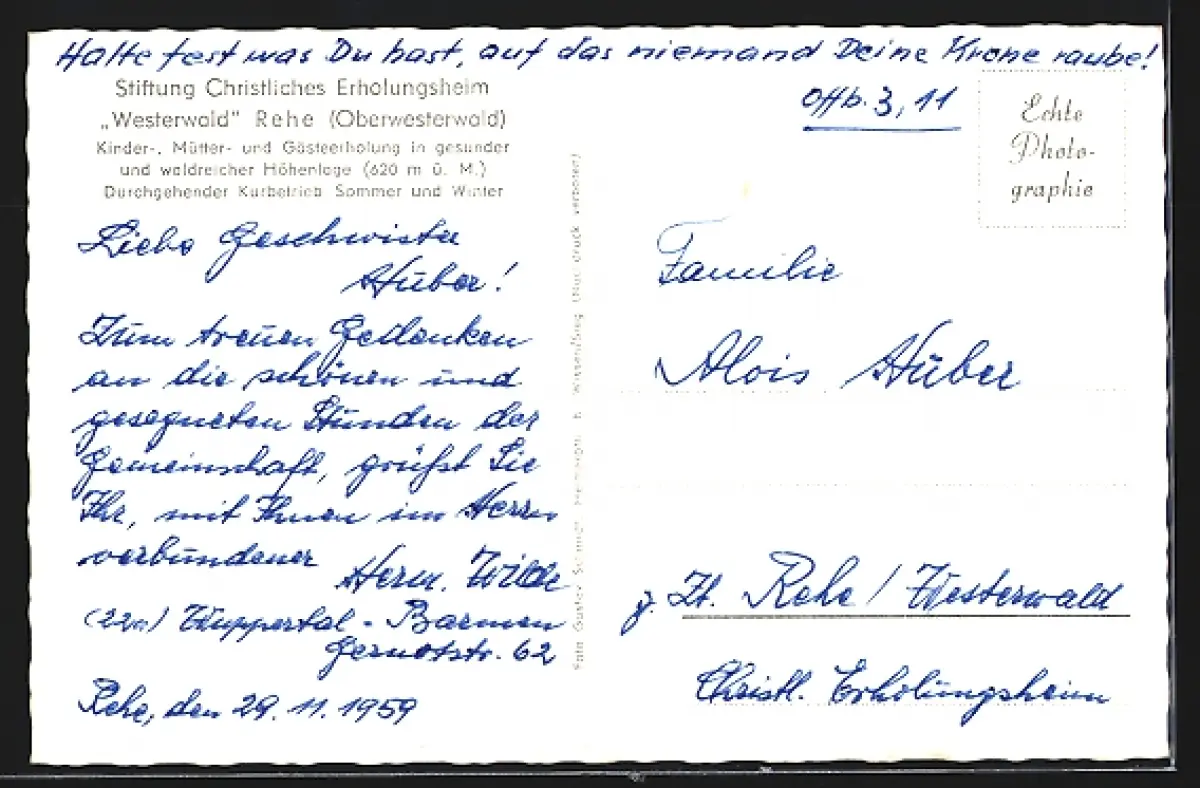 Halte fest was Du hast, auf das niemand Deine Krone raube!
Offb. 3, 11
Stiftung Christliches Erholungsheim
„Westerwald" Rehe (Oberwesterwald)
Kinder-, Mütter- und Gästeerholung in gesunder
und waldreicher Höhenlage (620 m ü. M.)
Durchgehender Kurbetrieb Sommer und Winter
Liebe Geschwister
Huber!
Zum treuen Gedenken
an die schönen und
gesegneten Stunden der
Gemeinschaft, grüßt Sie
Ihr, mit Ihnen im Herrn
verbundener
Herm. Wilde
Wuppertal - Barmen
Gernotstr. 62
Rehe, den 29. 11. 1959
Foto Gustav (Nachdruck verboten)
Echte
Photo-
graphie
Familie
Alois Huber
z. Zt. Rehe / Westerwald
Christl. Erholungsheim